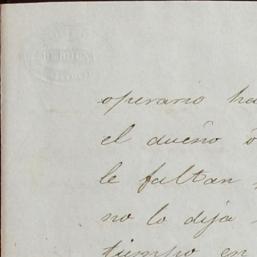 operario ha
el dueño ó
le faltan
no lo dija
tiempo en